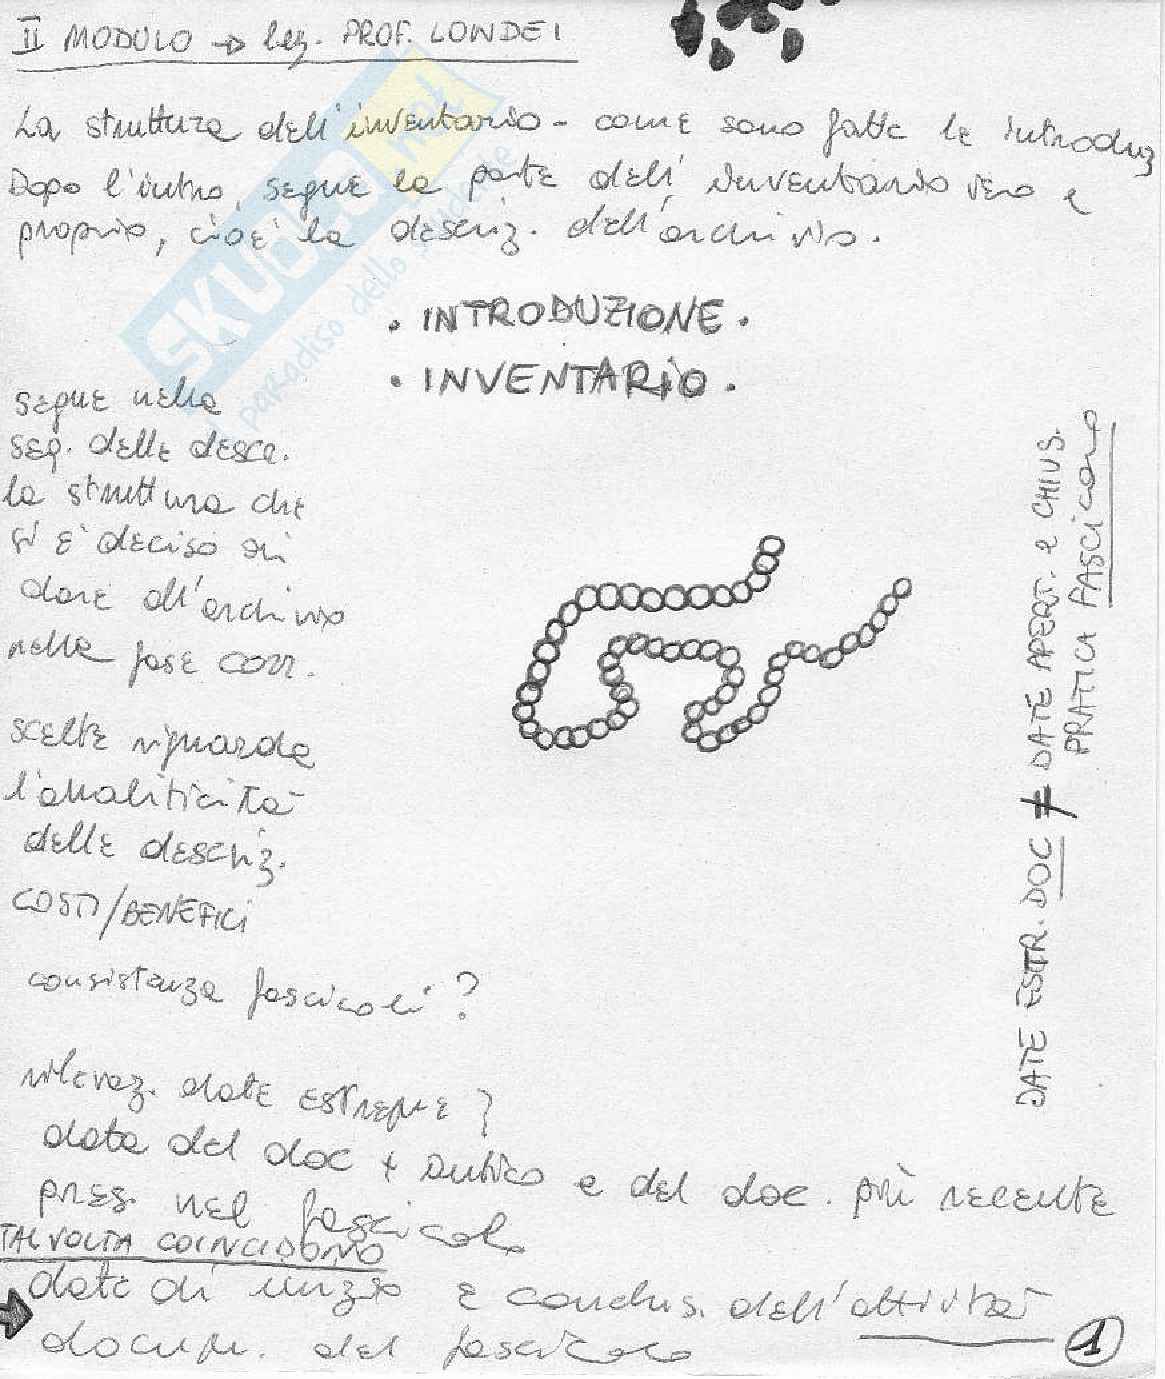 II MODULO → lez. PROF. LONDEI
La struttura dell'inventario - come sono fatte le introduz
Dopo l'intro, segue la parte dell'inventario vero e
proprio, cioè la descriz. dell'archivio.
. INTRODUZIONE .
. INVENTARIO .
segue nella
seq. delle descr.
la struttura che
si è deciso di
dare all'archivio
nella fase corr.
scelte riguardo
l'analiticità
delle descriz.
COSTI/BENEFICI
consistenza fascicoli?
rilevaz. date estreme?
data del doc + antico e del doc. più recente
pres. nel fascicolo
TALVOLTA COINCIDONO
date di inizio e conclus. dell'attività
docum. del fascicolo
1
DATE ESTR. DOC ≠ DATE APERT. e CHIUS.
PRATICA FASCICOLO
SKUOLA.net
il paradiso dello studente